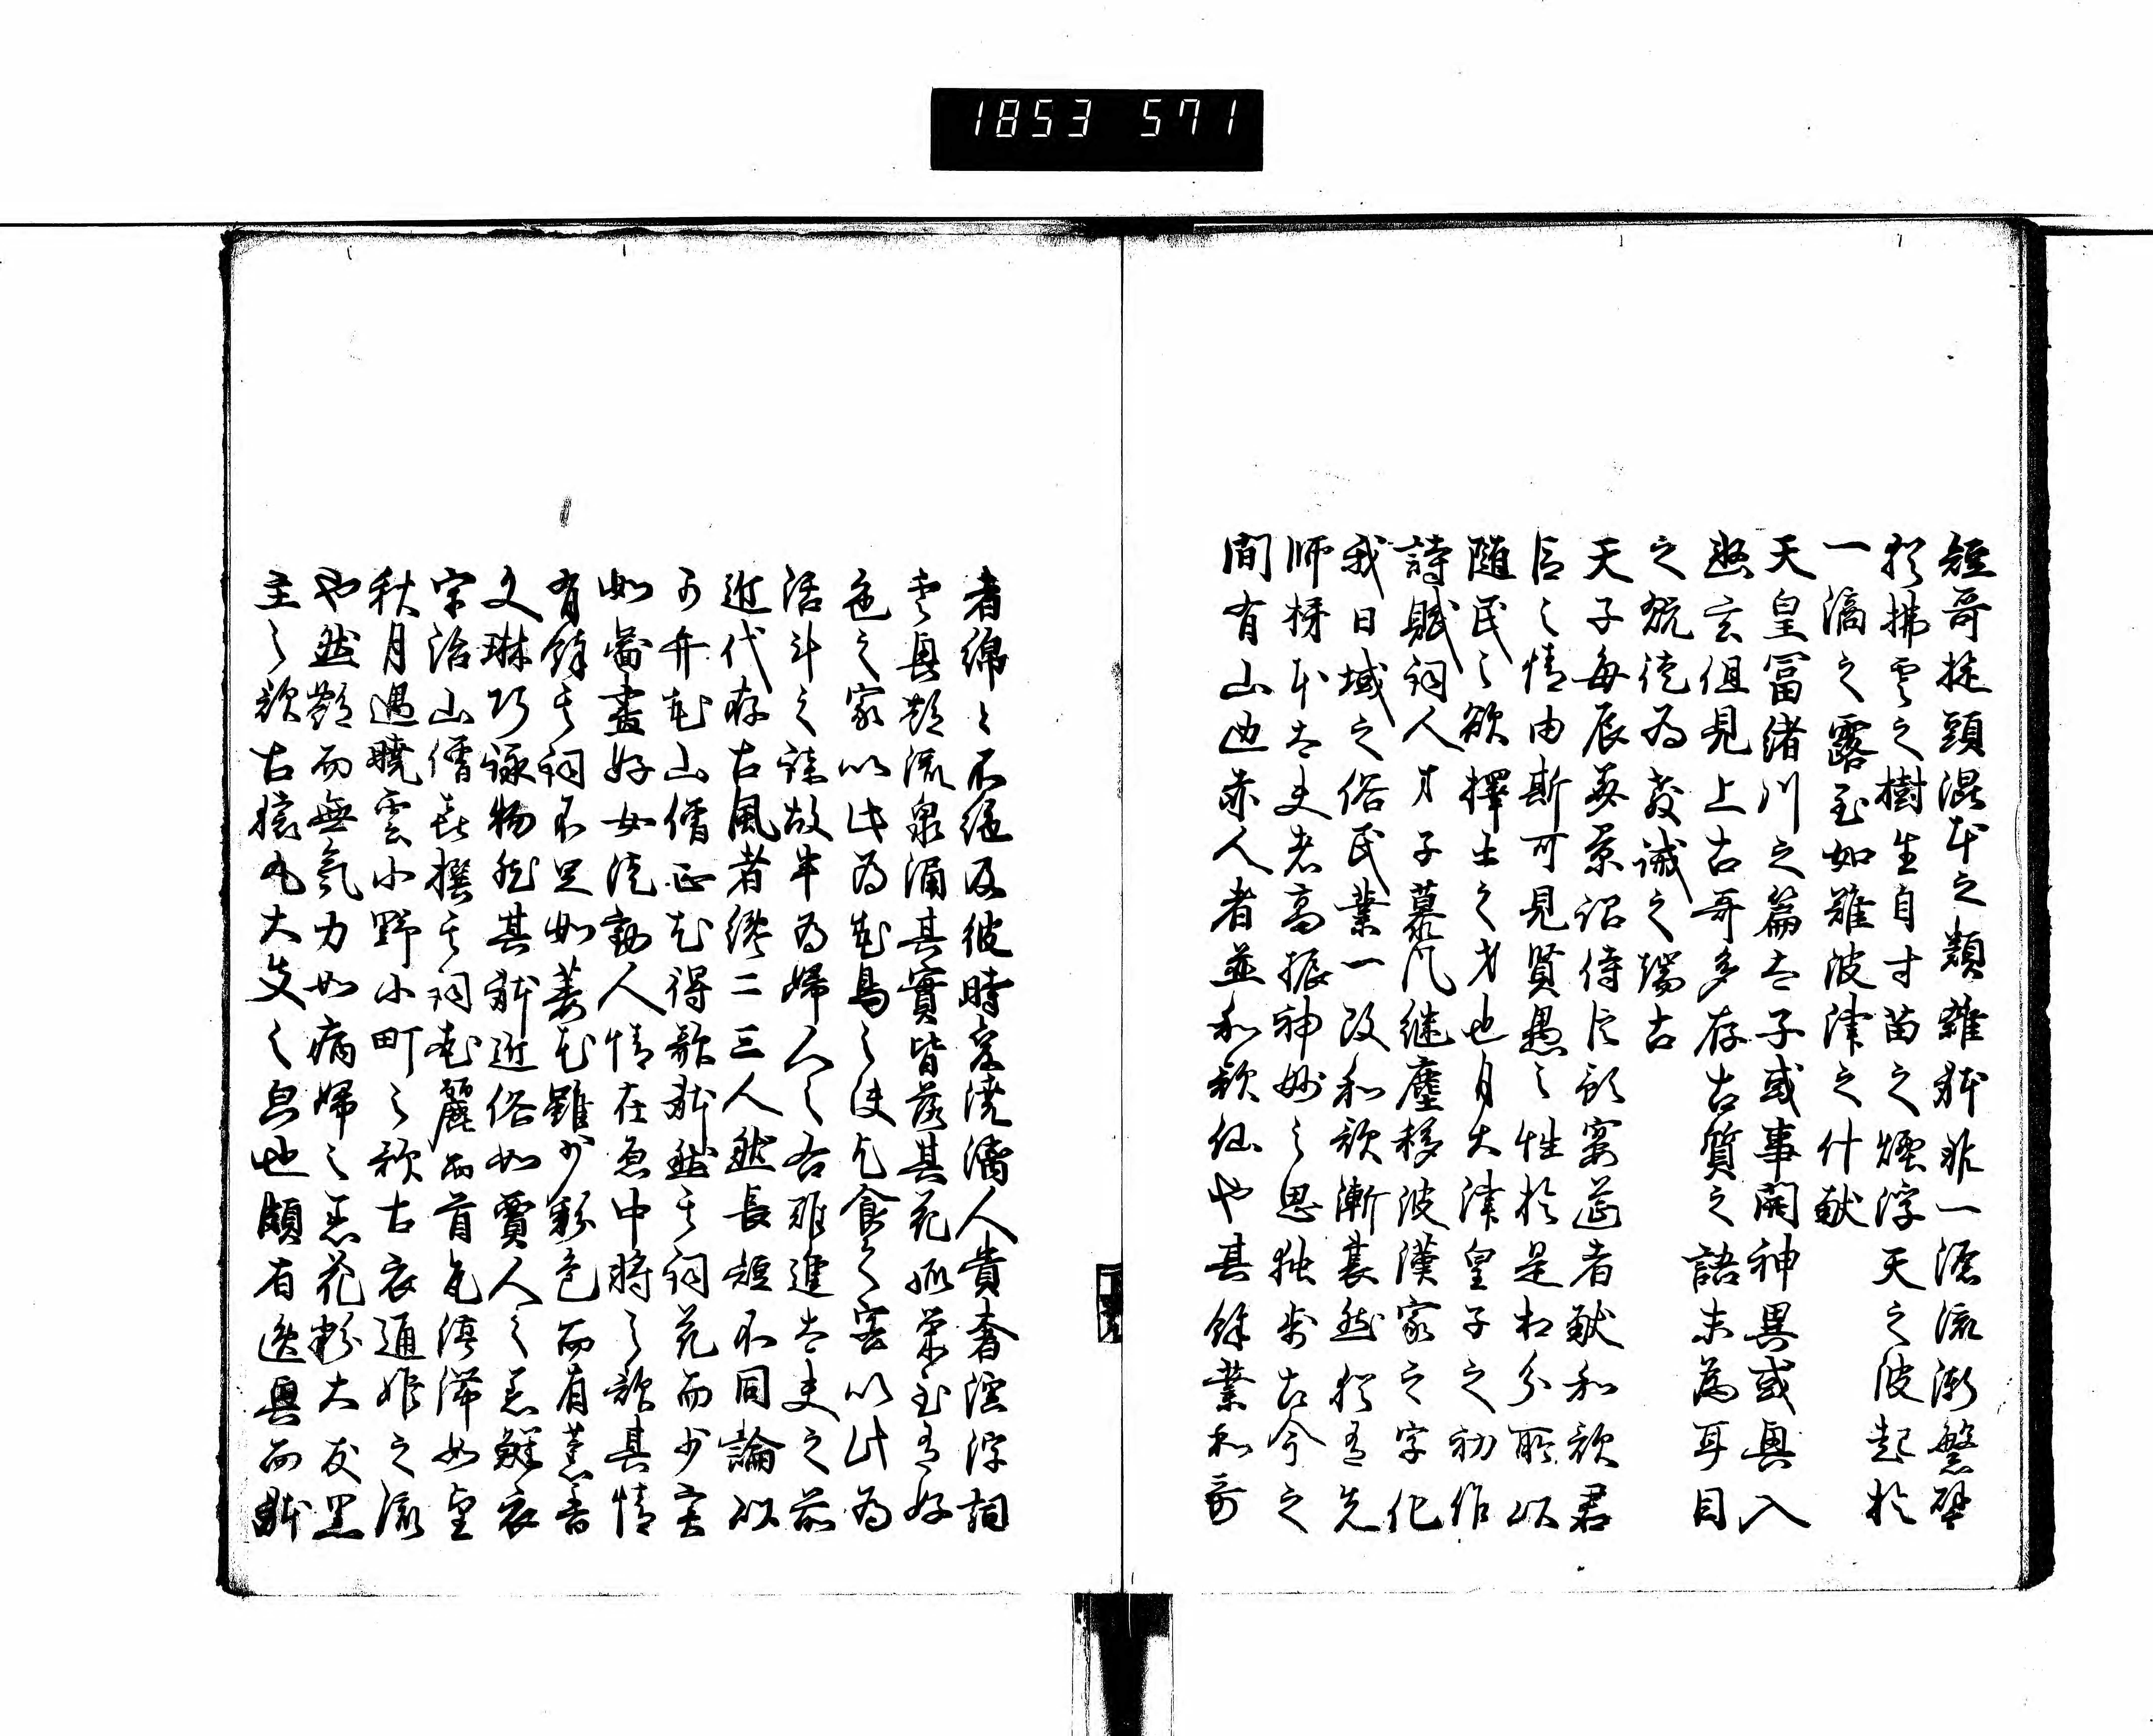 1853 571
短哥旋頭混本之類雑躰非一源流漸繁譬
猶拂雲之樹生自寸苗之煙浮天之波起於
一滴之露至如難波津之什献
天皇冨緒川之篇太子或事開神異或興入
幽玄但見上古哥多存古質之語未為耳目
之翫徒為教誡之端古
天子毎辰美景詔侍臣預宴莚者献和歌君
臣之情由斯可見賢愚之性於是相分所以
随民之欲擇士之才也自大津皇子之初作
詩賦詞人才子慕凡継塵移彼漢家之字化
我日域之俗民業一改和歌漸衰然猶有先
師柿本大夫者高振神妙之思独歩古今之
間有山辺赤人者並和歌仙也其餘業和哥
者綿々不絶及彼時変澆漓人貴奢淫浮詞
雲興艶流泉涌其實皆落其花孤栄至有好
色之家以此為花鳥之使乞食之客以此為
活計之謀故半為婦人之右難進大夫之前
近代存古風者纔二三人然長短不同論以
可弁花山僧正尤得歌躰然其詞花而少実
如図畫好女徒動人情在原中将之歌其情
有餘其詞不足如萎花雖少彩色而有薫香
文琳巧詠物然其躰近俗如賈人之着鮮衣
宇治山僧喜撰其詞花麗而首尾停滞如望
秋月遇暁雲小野小町之歌古衣通姫之流
也然艶而無氣力如病婦之着花粉大友黒
主之歌古猿丸大夫之息也頗有逸興而躰